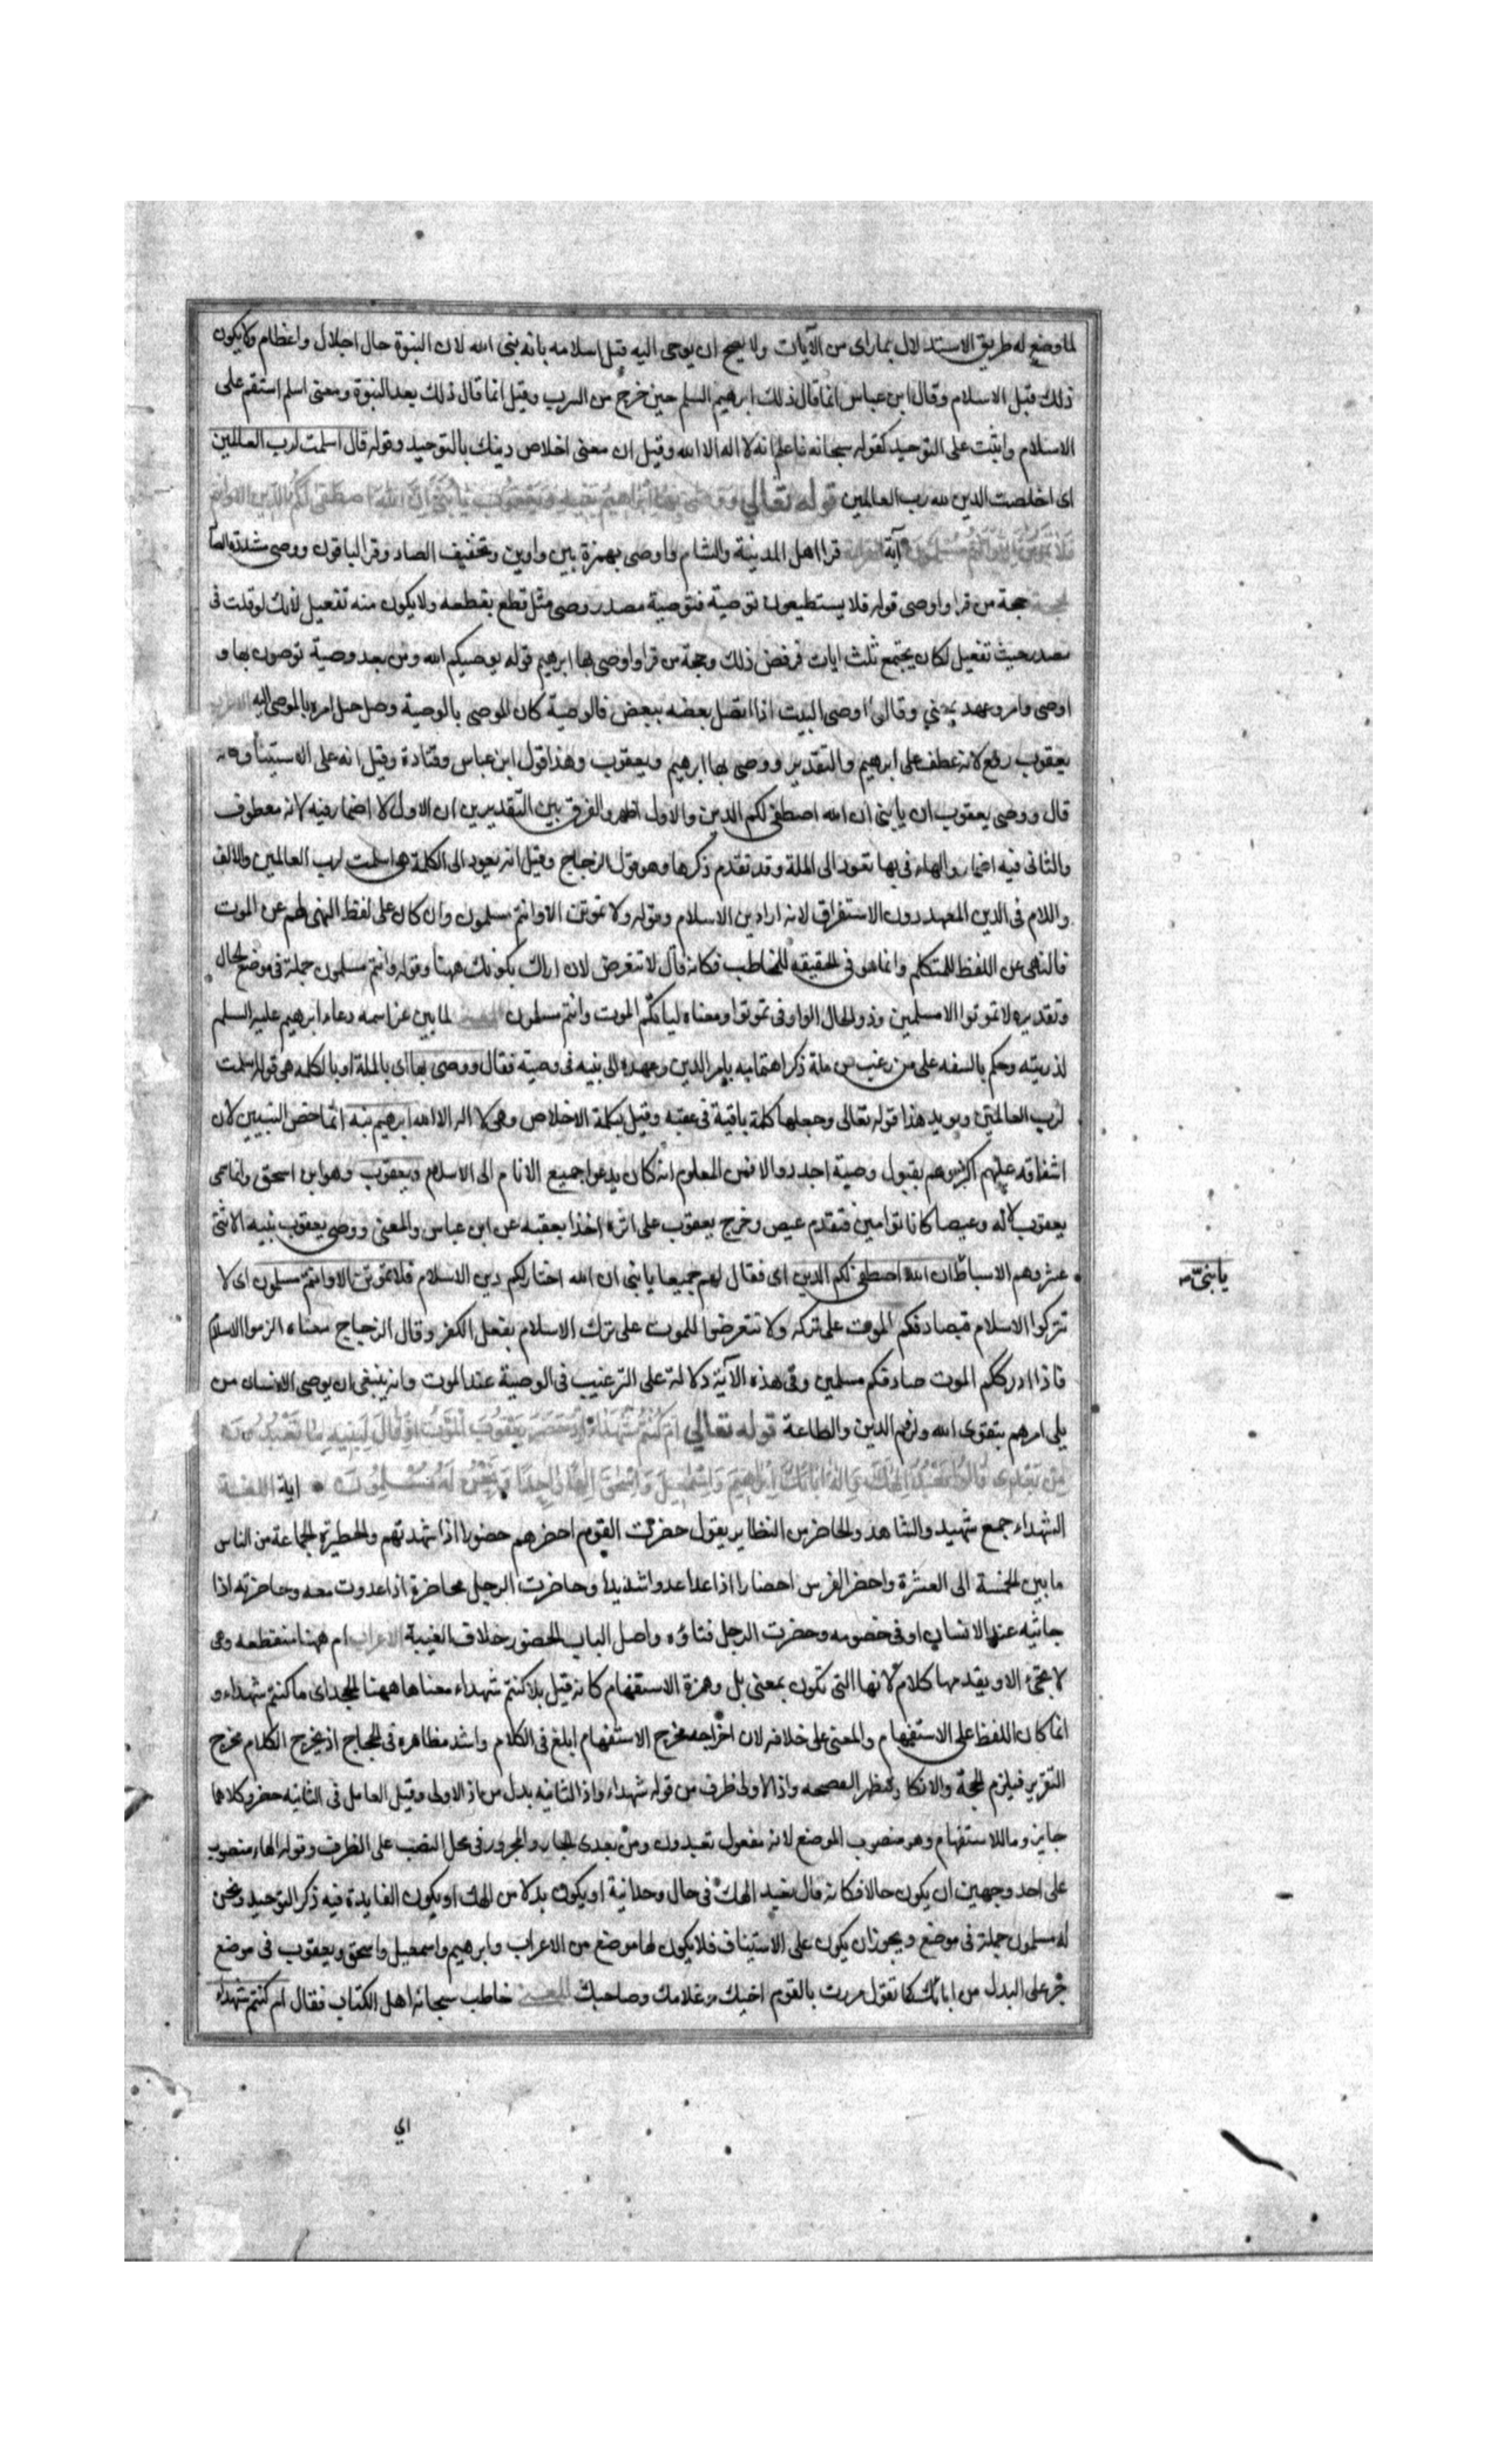 لما وضع له طريق الاستدلال بما رای من الآيات ولا يصح ان يوحی اليه قبل اسلامه بانه نبی الله لان النبوة حال اجلال واعظام ولا يكون
ذلك قبل الاسلام وقال ابن عباس انما قال ذلك ابرهيم السلم حين خرج من السرب وقيل انما قال ذلك بعد النبوة ومعنی اسلم استقم علی
الاسلام واثبت علی التوحيد كقوله سبحانه فاعلم انه لا اله الا الله وقيل ان معنی اخلاص دينك بالتوحيد وقوله قال اسلمت لرب العالمين
ای اخلصت الدين لله رب العالمين قوله تعالی ووصی بها ابرهيم بنيه ويعقوب يا بنی ان الله اصطفی لكم الدين
فلا تموتن الا وانتم مسلمون آية القراءة قرا اهل المدينة والشام واوصی بهمزة بين واوين وبتخفيف الصاد وقرا الباقون ووصی مشددة الصاد
الحجة حجة من قرا واوصی قوله فلا يستطيعون توصية فتوصية مصدر وصی مثل قطع يقطعه ولا يكون منه تفعيل لانك لو قلت فی
مصدر حيث تفعيل لكان يجتمع ثلث ايات فرفض ذلك وحجة من قرا واوصی بها ابرهيم قوله يوصيكم الله ومن بعد وصية توصون بها و
اوصی وامر وعهد وقال اوصی البيت اذا اتصل بعضه ببعض فالوصية كان الموصی بالوصية وصل حبل امره بالموصی اليه
يعقوب رفع لانه عطف علی ابرهيم والتقدير ووصی بها ابرهيم ويعقوب وهذا قول ابن عباس وقتادة وقيل انه علی الاستيناف كانه
قال ووصی يعقوب ان يا بنی ان الله اصطفی لكم الدين والاول اظهر والفرق بين التقديرين ان الاول لا اضمار فيه لانه معطوف
والثانی فيه اضمار والهاء فی بها تعود الی الملة وقد تقدم ذكرها وهو قول الزجاج وقيل انه يعود الی الكلمة هی اسلمت لرب العالمين والالف
واللام فی الدين المعهد دون الاستغراق لانه اراد دين الاسلام وقوله ولا تموتن الا وانتم مسلمون وان كان علی لفظ النهی لهم عن الموت
فالنهی عن اللفظ للمتكلم وانما هو فی الحقيقه للمخاطب فكانه قال لا تتعرض لان اراك بكونك ههنا وقوله وانتم مسلمون جملة فی موضع الحال
وتقديره لا تموتوا الا مسلمين وذو الحال الواو فی تموتوا ومعناه لياتكم الموت وانتم مسلمون المعنی لما بين عز اسمه دعاء ابرهيم عليه السلم
لذريته وحكم بالسفه علی من رغب من ملة ذكر اهتمامه بامر الدين وعهده الی بنيه فی وصية فقال ووصی بها ای بالملة او بالكلمة هی قوله اسلمت
لرب العالمين ويويد هذا قوله تعالی وجعلها كلمة باقية فی عقبه وقيل بكلمة الاخلاص وهی لا اله الا الله ابرهيم بنيه انما خص النبيين لان
اشفاقه عليهم اكثر وهم بقبول وصية اجدر والا فمن المعلوم انه كان يدعو جميع الانام الی الاسلام ويعقوب وهو ابن اسحق وانما سمی
يعقوب لانه وعيصا كانا توامين فتقدم عيص وخرج يعقوب علی اثره اخذا بعقبه عن ابن عباس والمعنی ووصی يعقوب بنيه الاثنی
عشر وهم الاسباط ان الله اصطفی لكم الدين ای فقال لهم جميعا يا بنی ان الله اختار لكم دين الاسلام فلا تموتن الا وانتم مسلمون ای لا
يا بنیّ
تتركوا الاسلام فيصادفكم الموت علی تركه ولا تتعرضوا للموت علی ترك الاسلام بفعل الكفر وقال الزجاج معناه الزموا الاسلام
فاذا ادرككم الموت صادفكم مسلمين وفی هذه الآية دلالة علی الترغيب فی الوصية عند الموت وانه ينبغی ان يوصی الانسان من
يلی امرهم بتقوی الله ولزوم الدين والطاعة قوله تعالی ام كنتم شهداء اذ حضر يعقوب الموت اذ قال لبنيه ما تعبدون
من بعدی قالوا نعبد الهك واله ابائك ابرهيم واسمعيل واسحق الها واحدا ونحن له مسلمون اية اللغة
الشهداء جمع شهيد والشاهد والحاضر من النظاير يقول حضرت القوم احضرهم حضورا اذا شهدتهم والحظيرة الجماعة من الناس
ما بين الخمسة الی العشرة واحضر الفرس احضارا اذا عدا عدوا شديدا وحاضرت الرجل محاضرة اذا عدوت معه وحاضرته اذا
جاثيته عند الانسان او فی خصومه وحضرت الرجل فناؤه واصل الباب الحضور خلاف الغيبة الاعراب ام ههنا منقطعه وهی
لا تجیء الا ويقدمها كلام لانها التی تكون بمعنی بل وهمزة الاستفهام كانه قيل بل اكنتم شهداء معناها ههنا الجحد ای ما كنتم شهداء و
انما كان اللفظ علی الاستفهام والمعنی علی خلافه لان اخراجه مخرج الاستفهام ابلغ فی الكلام واشد مظاهرة فی الحجاج اذ يخرج الكلام مخرج
التقرير فيلزم الحجة والانكار فتظهر الفضيحه واذ الاولی ظرف من قوله شهداء واذ الثانيه بدل من اذ الاولی وقيل العامل فی الثانيه حضر وكلاهما
جايز وما للاستفهام وهو منصوب الموضع لانه مفعول تعبدون ومن بعدی الجار والمجرور فی محل النصب علی الظرف وقوله الها منصوب
علی احد وجهين ان يكون حالا فكانه قال نعبد الهك فی حال وحدانية او يكون بدلا من الهك او يكون الفايدة فيه ذكر التوحيد ونحن
له مسلمون جملة فی موضع ويجوز ان يكون علی الاستيناف فلا يكون لها موضع من الاعراب وابرهيم واسمعيل واسحق ويعقوب فی موضع
جر علی البدل من ابائك كما تقول مررت بالقوم اخيك وغلامك وصاحبك المعنی خاطب سبحانه اهل الكتاب فقال ام كنتم شهداء
ای